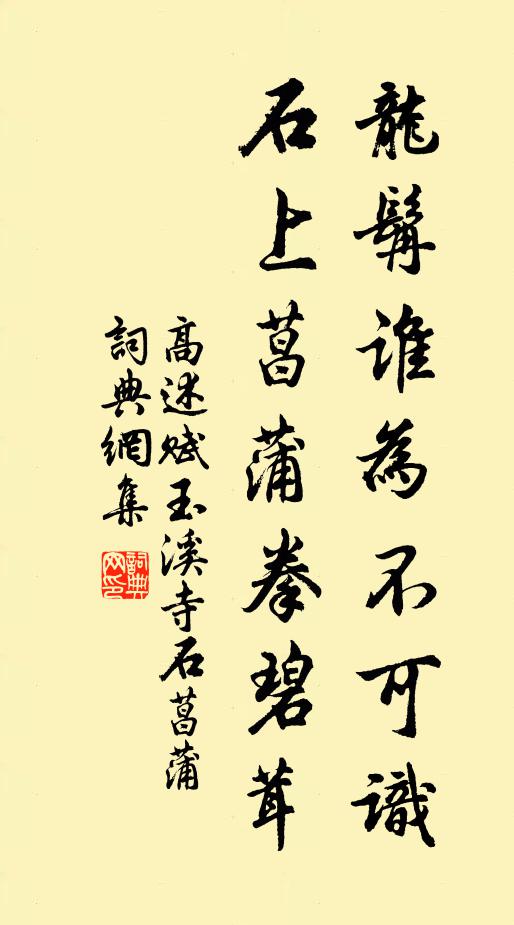 龍髯誰為不可識
石上菖蒲拳碧茸
高述賦玉溪寺石菖蒲
詞典網集
詞典
网印